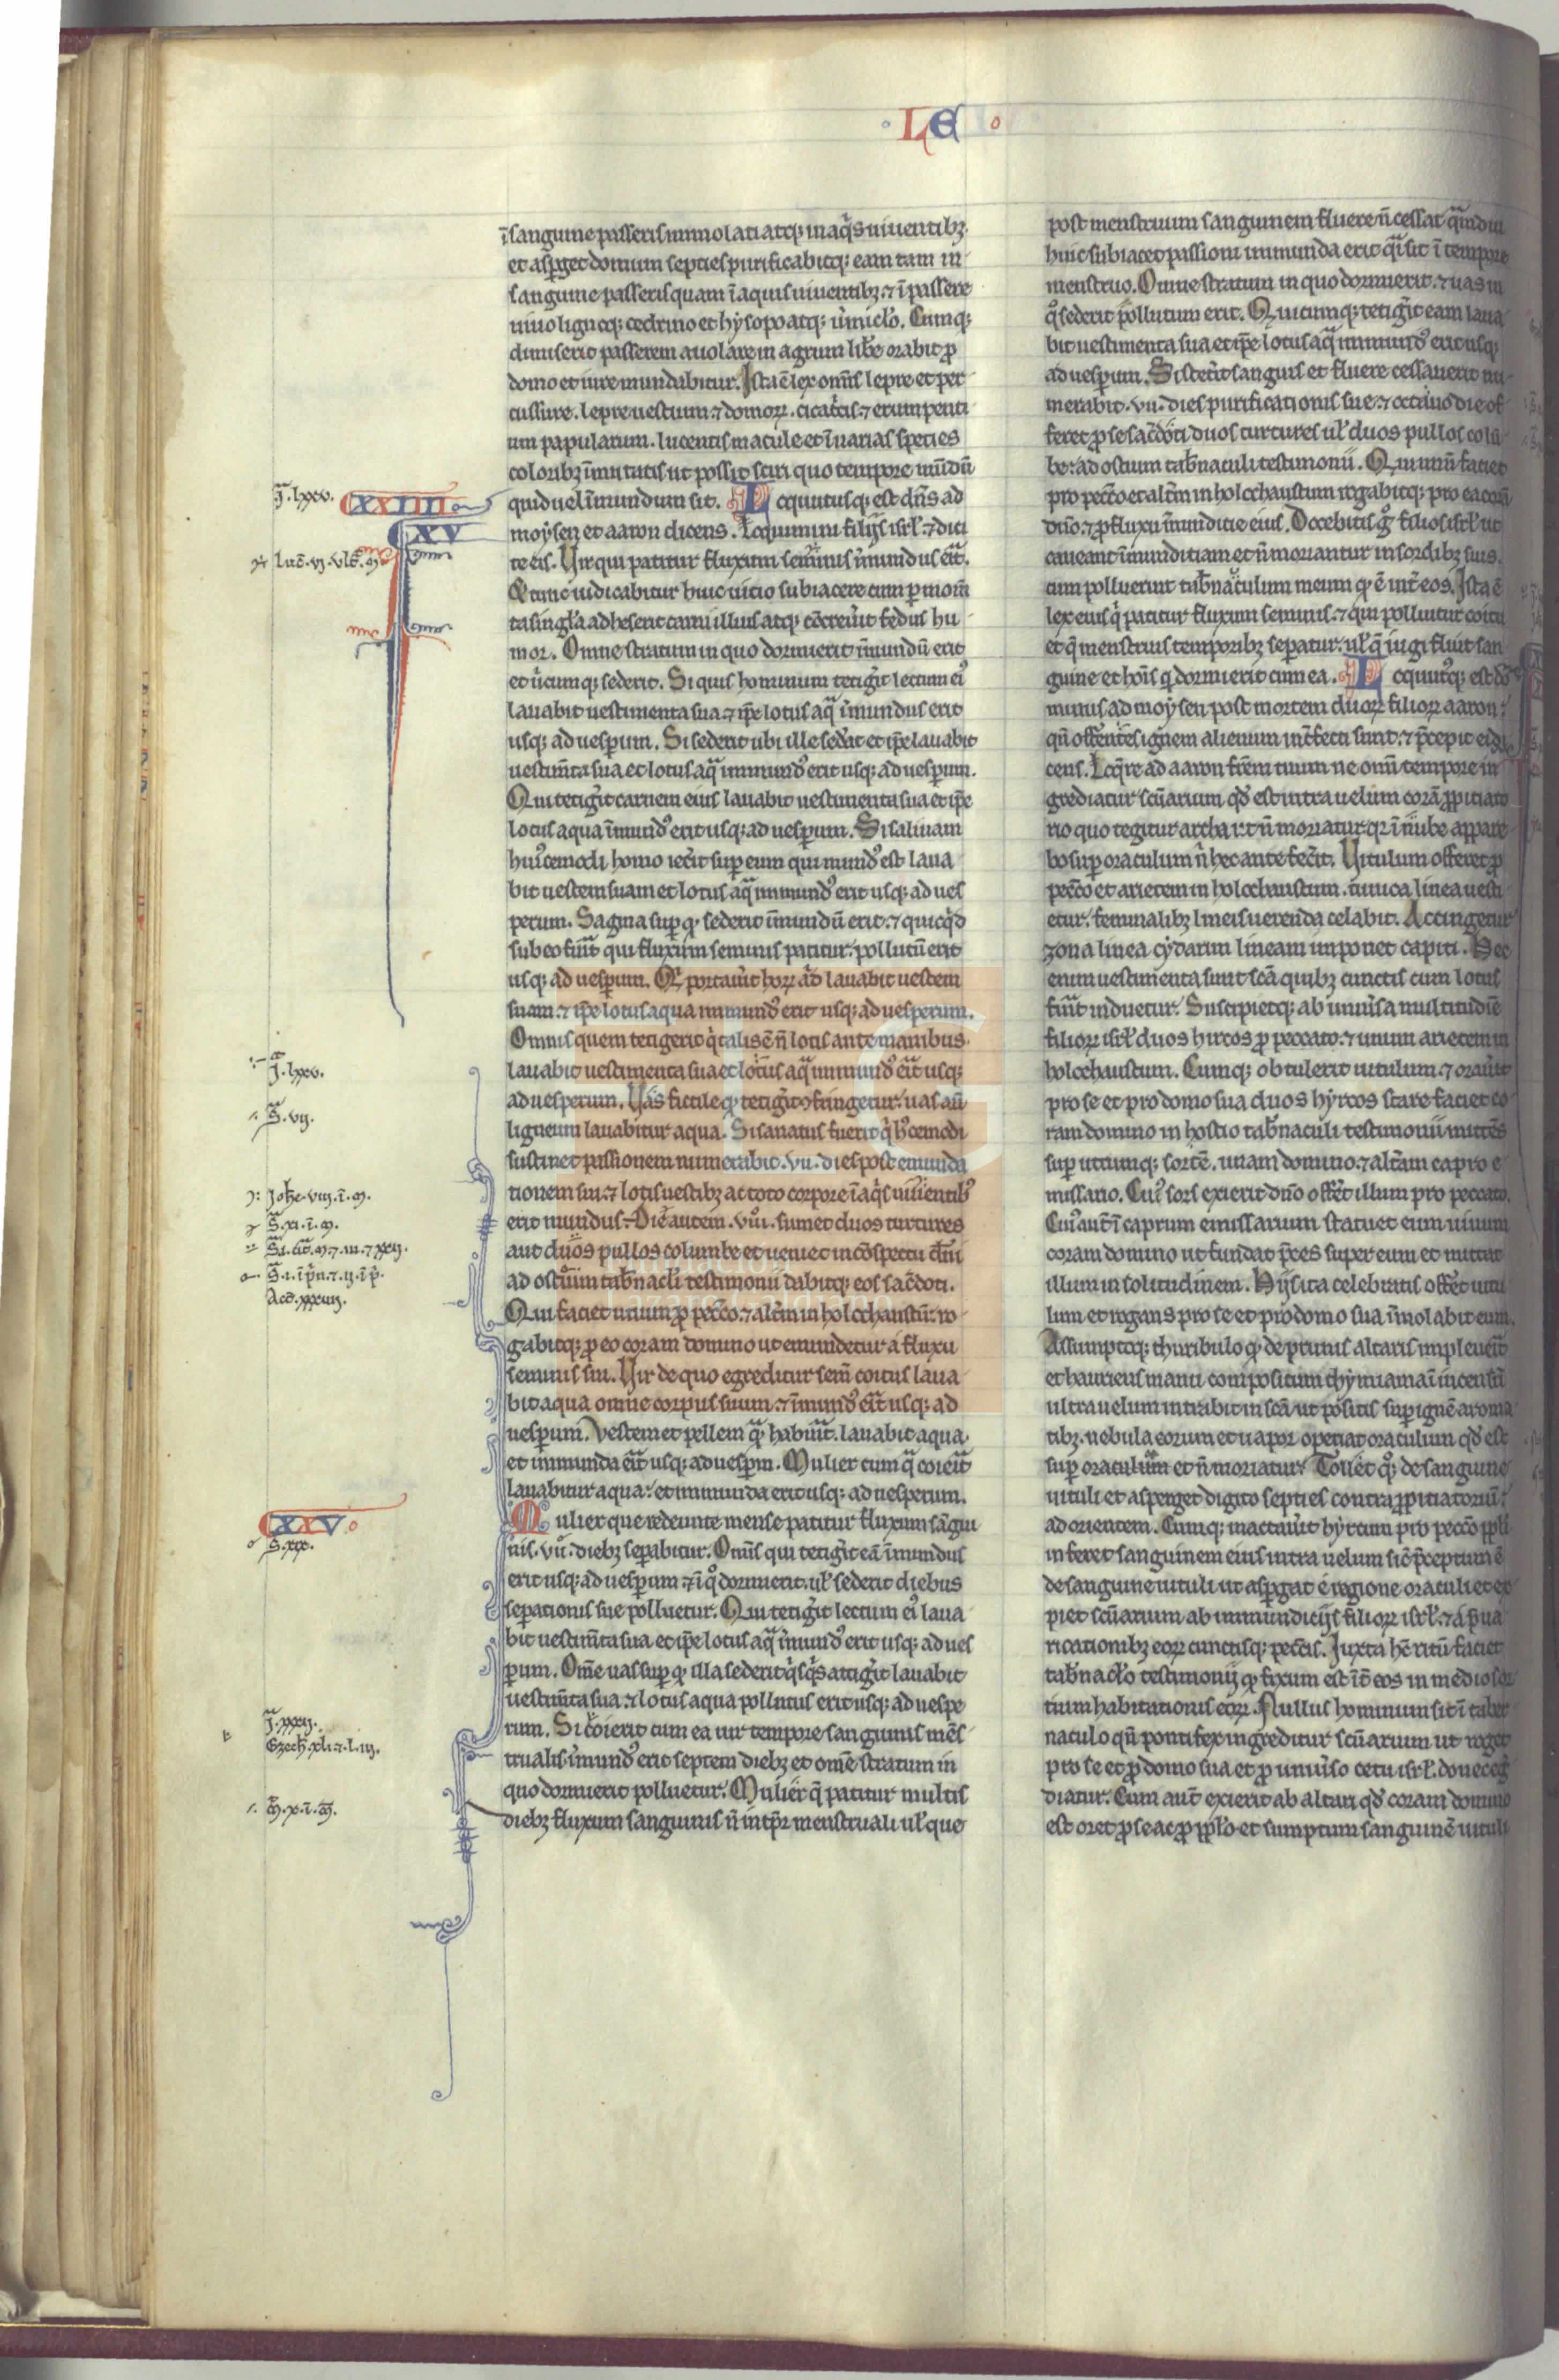 LE
ī sanguine passeris immolati atq; in aq̄s uiuentibꝫ.
et asꝑget domum septies purificabitq; eam tam in
sanguine passeris quam ī aquis uiuentibꝫ. ⁊ ī passere
uiuo lignoq; cedrino et hysopo atq; ūmiclo. Cumq;
dimiserit passerem auolare in agrum libe orabit ꝓ
domo et iure mundabitur. Ista ē lex om̄is lepre et per
cussure. lepre uestium ⁊ domoꝝ. cicatcis. ⁊ erumpenti
um papularum. lucentis macule et ī uarias species
coloribꝫ īmutatis ut possit sciri quo tempore mūdū
quid uel īmundum sit. Locqutusq; est dn̄s ad
XXIIII
XV
moysen et aaron dicens. Loquimini filijs isrł. ⁊ dici
te eis. Uir qui patitur fluxum seminis īmundus erit.
Et tunc iudicabitur huic uicio subiacere cum ꝑ mom̄
ta singła adheserit carni illius atq; cōcreuit fedus hu
mor. Omne stratum in quo dormierit īmundū erit
et ubicumq; sederit. Si quis hominum tetigit lectum eiꝰ
lauabit uestimenta sua. ⁊ ip̄e lotus aq̄ īmundus erit
usq; ad uesꝑum. Si sederit ubi ille sederat et ip̄e lauabit
uestim̄ta sua et lotus aq̄ immundꝰ erit usq; ad uesꝑum.
Qui tetigit carnem eius lauabit uestimenta sua et ip̄e
lotus aqua īmundꝰ erit usq; ad uesꝑum. Si saliuam
huiꝰcemodi homo iecit suꝑ eum qui mundꝰ est laua
bit uestem suam et lotus aq̄ immundꝰ erit usq; ad ues
perum. Sagma suꝑ qꝰ sederit īmundū erit. ⁊ quicq̄d
sub eo fuit qui fluxum seminis patitur. pollutū erit
usq; ad uesꝑum. Qͥ portauit hoꝝ aliq̄d lauabit uestem
suam. ⁊ ip̄e lotus aqua immundꝰ erit usq; ad uesperum.
Omnis quem tetigerit qͥ talis ē n̄ lotis ante manibus.
lauabit uestimenta sua et lotus aq̄ immundꝰ erit usq;
ad uesperum. Uas fictile qꝰ tetigit ꝯfringetur. uas aū
ligneum lauabitur aqua. Si sanatus fuerit qͥ hꝰcemodi
sustinet passionem numerabit. vii. dies post emunda
tionem sui. ⁊ lotis uestibꝫ ac toto corpore ī aq̄s uiuentibꝰ
erit mundus. Die autem. viii. sumet duos turtures
aut duos pullos columbe et ueniet in cōspectu dn̄i
ad ostium tab̄nacli testimonii dabitq; eos sac̄doti.
Qui faciet unum ꝓ pecc̄o. ⁊ alt̄m in holochaustū. ro
gabitq; ꝓ eo coram domino ut emundetur a fluxu
seminis sui. Uir de quo egreditur sem̄ coitus laua
bit aqua omne corpus suum. ⁊ īmundꝰ erit usq; ad
uesꝑum. Vestem et pellem q̄ habuit. lauabit aqua.
et immunda erit usq; ad uesꝑm. Mulier cum q̄ coierit
lauabitur aqua. et immunda erit usq; ad uesperum.
XXV
Mulier que redeunte mense patitur fluxum sāgui
nis. vii. diebꝫ seꝑabitur. Om̄is qui tetigit eā īmundus
erit usq; ad uesꝑum. ⁊ ī qͦ dormierit. uł sederit diebus
seꝑationis sue polluetur. Qui tetigit lectum eiꝰ laua
bit uestim̄ta sua et ip̄e lotus aq̄ īmundꝰ erit usq; ad ues
ꝑum. Om̄e uas suꝑ qꝰ illa sederit qͥsqͥs attigit lauabit
uestim̄ta sua. ⁊ lotus aqua pollutus erit usq; ad uespe
rum. Si coierit cum ea uir tempore sanguinis mēs
trualis īmundꝰ erit septem diebꝫ et om̄e stratum in
quo dormierit polluetur. Mulier q̄ patitur multis
diebꝫ fluxum sanguinis n̄ in tꝑr menstruali uł que
post menstruum sanguinem fluere n̄ cessat q̄mdiu
huic subiacet passioni immunda erit q̄si sit ī tempore
menstruo. Omne stratum in quo dormierit. ⁊ uas in
qͦ sederit pollutum erit. Quicumq; tetigit eam laua
bit uestimenta sua et ip̄e lotus aq̄ immundꝰ erit usq;
ad uesꝑum. Si steterit sanguis et fluere cessauerit nu
merabit. vii. dies purificationis sue. ⁊ octauo die of
feret ꝓ se sac̄doti duos turtures uł duos pullos colū
be. ad ostium tab̄naculi testimonii. Qui unū faciet
pro pecc̄o et alt̄m in holochaustum rogabitq; pro ea corā
dn̄o. ⁊ ꝓ fluxu īmunditie eius. Docebitis gͦ filios isrł ut
caueant īmunditiam et n̄ moriantur in sordibꝫ suis.
cum polluerint tab̄naculum meum qꝰ ē int̄ eos. Ista ē
lex eius qͥ patitur fluxum seminis. ⁊ qui polluitur coitu
et q̄ menstruis temporibꝫ seꝑatur. uł q̄ iugi fluit san
guine et hoīs qͥ dormierit cum ea. Locqutꝰq; est do
minus ad moysen post mortem duoꝝ filioꝝ aaron.
qn̄ offerentes ignem alienum int̄fecti sunt. ⁊ p̄cepit ei di
cens. Loq̄re ad aaron fr̄em tuum ne omī tempore in
grediatur sc̄uarium qd̄ est intra uelum corā ꝓpitiato
rio quo tegitur archa ut n̄ moriatur. qꝛ ī nube appare
bo suꝑ oraculum n̄ hec ante fecit. Uitulum offeret ꝓ
pecc̄o et arietem in holochaustum. tunica linea uesti
etur. feminalibꝫ lineis uerenda celabit. Accingetur
zona linea cydarim lineam imponet capiti. Hec
enim uestimenta sunt scā quibꝫ cunctis cum lotus
fuit induetur. Suscipietq; ab uniūsa multitudīe
filioꝝ isrł duos hircos ꝓ peccato. ⁊ unum arietem in
holochaustum. Cumq; obtulerit uitulum. ⁊ orauit
pro se et pro domo sua duos hyrcos stare faciet co
ram domino in hostio tab̄naculi testimonii mittēs
suꝑ utrumq; sortē. unam domino. ⁊ alt̄am capro e
missario. Cuiꝰ sors exierit dn̄o offeret illum pro peccato.
Cuiꝰ aūt ī caprum emissarium statuet eum uiuum
coram domino ut fundat p̄ces super eum et mittat
illum in solitudinem. Hijs ita celebratis offeret uitu
lum et rogans pro se et pro domo sua īmolabit eum.
Assumptoq; thuribulo qꝰ de prunis altaris impleuit
et hauriens manu compositum thymiama ī incensū
ultra uelum intrabit in scā ut positis suꝑ ignē aroma
tibꝫ. nebula eorum et uapor operiat oraculum qd̄ est
suꝑ oraculum et n̄ moriatur. Tollet qͦꝫ de sanguine
uituli et asperget digito septies contra ꝓpitiatoriū.
ad orientem. Cumq; mactauit hyrcum pro pecc̄o ppłi
inferet sanguinem eius intra uelum sic p̄ceptum ē
de sanguine uituli ut asꝑgat e regione oraculi et ex
piet sc̄uarium ab immundicijs filioꝝ isrł. ⁊ a p̄ua
ricationibꝫ eoꝝ cunctisq; pecc̄is. Iuxta hc̄ ritū faciet
tab̄nacło testimonij qꝰ fixum est īt̄ eos in medio sor
tium habitationis eoꝝ. Nullus hominum sit ī taber
naculo qn̄ pontifex ingreditur sc̄uarium ut roget
pro se et ꝓ domo sua et ꝓ uniūso cetu isrł. donec eḡ
diatur. Cum aūt exierit ab altari qd̄ coram domino
est oret ꝓ se ac ꝓ ppło et sumptum sanguinē uituli